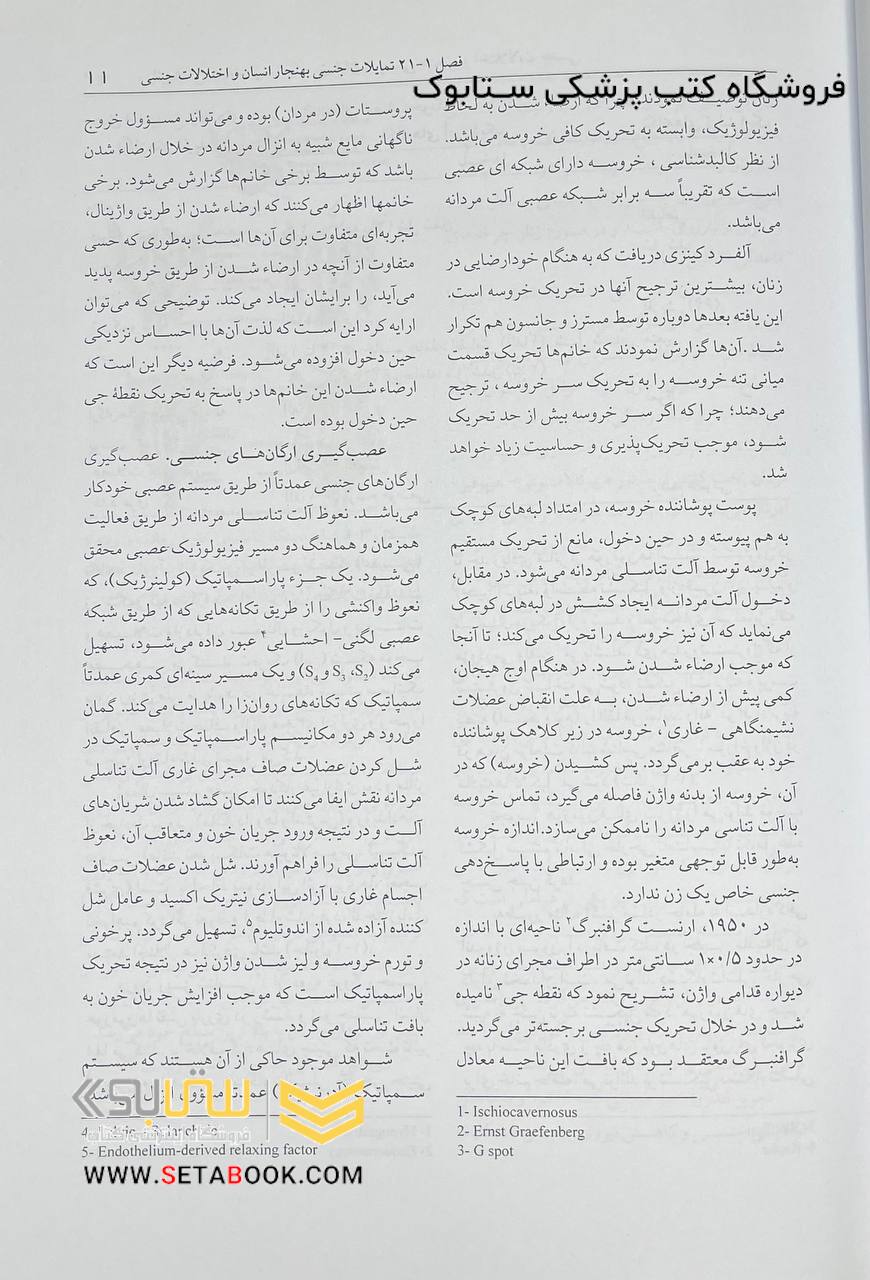 فصل ۱-۲۱ تمایلات جنسی بهنجار انسان و اختلالات جنسی
۱۱
فروشگاه کتب پزشکی ستابوک
زنان توصیف نمودند، چرا که ارضاء شدن به لحاظ
فیزیولوژیک، وابسته به تحریک کافی خروسه می‌باشد.
از نظر کالبدشناسی ، خروسه دارای شبکه ای عصبی
است که تقریباً سه برابر شبکه عصبی آلت مردانه
می‌باشد.
آلفرد کینزی دریافت که به هنگام خودارضایی در
زنان، بیشترین ترجیح آنها در تحریک خروسه است.
این یافته بعدها دوباره توسط مسترز و جانسون هم تکرار
شد .آن‌ها گزارش نمودند که خانم‌ها تحریک قسمت
میانی تنه خروسه را به تحریک سر خروسه ، ترجیح
می‌دهند؛ چرا که اگر سر خروسه بیش از حد تحریک
شود، موجب تحریک‌پذیری و حساسیت زیاد خواهد
شد.
پوست پوشاننده خروسه، در امتداد لبه‌های کوچک
به هم پیوسته و در حین دخول، مانع از تحریک مستقیم
خروسه توسط آلت تناسلی مردانه می‌شود. در مقابل،
دخول آلت مردانه ایجاد کشش در لبه‌های کوچک
می‌نماید که آن نیز خروسه را تحریک می‌کند؛ تا آنجا
که موجب ارضاء شدن شود. در هنگام اوج هیجان،
کمی پیش از ارضاء شدن، به علت انقباض عضلات
نشیمنگاهی - غاری۱، خروسه در زیر کلاهک پوشاننده
خود به عقب برمی‌گردد. پس کشیدن (خروسه) که در
آن، خروسه از بدنه واژن فاصله می‌گیرد، تماس خروسه
با آلت تناسی مردانه را ناممکن می‌سازد.اندازه خروسه
به‌طور قابل توجهی متغیر بوده و ارتباطی با پاسخ‌دهی
جنسی خاص یک زن ندارد.
در ۱۹۵۰، ارنست گرافنبرگ۲ ناحیه‌ای با اندازه
در حدود ۰/۵×۱ سانتی‌متر در اطراف مجرای زنانه در
دیواره قدامی واژن، تشریح نمود که نقطه جی۳ نامیده
شد و در خلال تحریک جنسی برجسته‌تر می‌گردید.
گرافنبرگ معتقد بود که بافت این ناحیه معادل
1- Ischiocavernosus
2- Ernst Graefenberg
3- G spot
پروستات (در مردان) بوده و می‌تواند مسؤول خروج
ناگهانی مایع شبیه به انزال مردانه در خلال ارضاء شدن
باشد که توسط برخی خانم‌ها گزارش می‌شود. برخی
خانمها اظهار می‌کنند که ارضاء شدن از طریق واژینال،
تجربه‌ای متفاوت برای آن‌ها است؛ به‌طوری که حسی
متفاوت از آنچه در ارضاء شدن از طریق خروسه پدید
می‌آید، را برایشان ایجاد می‌کند. توضیحی که می‌توان
ارایه کرد این است که لذت آن‌ها با احساس نزدیکی
حین دخول افزوده می‌شود. فرضیه دیگر این است که
ارضاء شدن این خانم‌ها در پاسخ به تحریک نقطهٔ جی
حین دخول بوده است.
عصب‌گیری ارگان‌های جنسی. عصب‌گیری
ارگان‌های جنسی عمدتاً از طریق سیستم عصبی خودکار
می‌باشد. نعوظ آلت تناسلی مردانه از طریق فعالیت
همزمان و هماهنگ دو مسیر فیزیولوژیک عصبی محقق
می‌شود. یک جزء پاراسمپاتیک (کولینرژیک)، که
نعوظ واکنشی را از طریق تکانه‌هایی که از طریق شبکه
عصبی لگنی- احشایی۴ عبور داده می‌شود، تسهیل
می‌کند (S2، S3 و S4) و یک مسیر سینه‌ای کمری عمدتاً
سمپاتیک که تکانه‌های روان‌زا را هدایت می‌کند. گمان
می‌رود هر دو مکانیسم پاراسمپاتیک و سمپاتیک در
شل کردن عضلات صاف مجرای غاری آلت تناسلی
مردانه نقش ایفا می‌کنند تا امکان گشاد شدن شریان‌های
آلت و در نتیجه ورود جریان خون و متعاقب آن، نعوظ
آلت تناسلی را فراهم آورند. شل شدن عضلات صاف
اجسام غاری با آزادسازی نیتریک اکسید و عامل شل
کننده آزاده شده از اندوتلیوم۵، تسهیل می‌گردد. پرخونی
و تورم خروسه و لیز شدن واژن نیز در نتیجه تحریک
پاراسمپاتیک است که موجب افزایش جریان خون به
بافت تناسلی می‌گردد.
شواهد موجود حاکی از آن هستند که سیستم
سمپاتیک (آدرنرژیک) عمدتاً مسؤول انزال می‌باشد.
4-
5- Endothelium-derived relaxing factor
ستابوک
فروشگاه اینترنتی کتاب
WWW.SETABOOK.COM